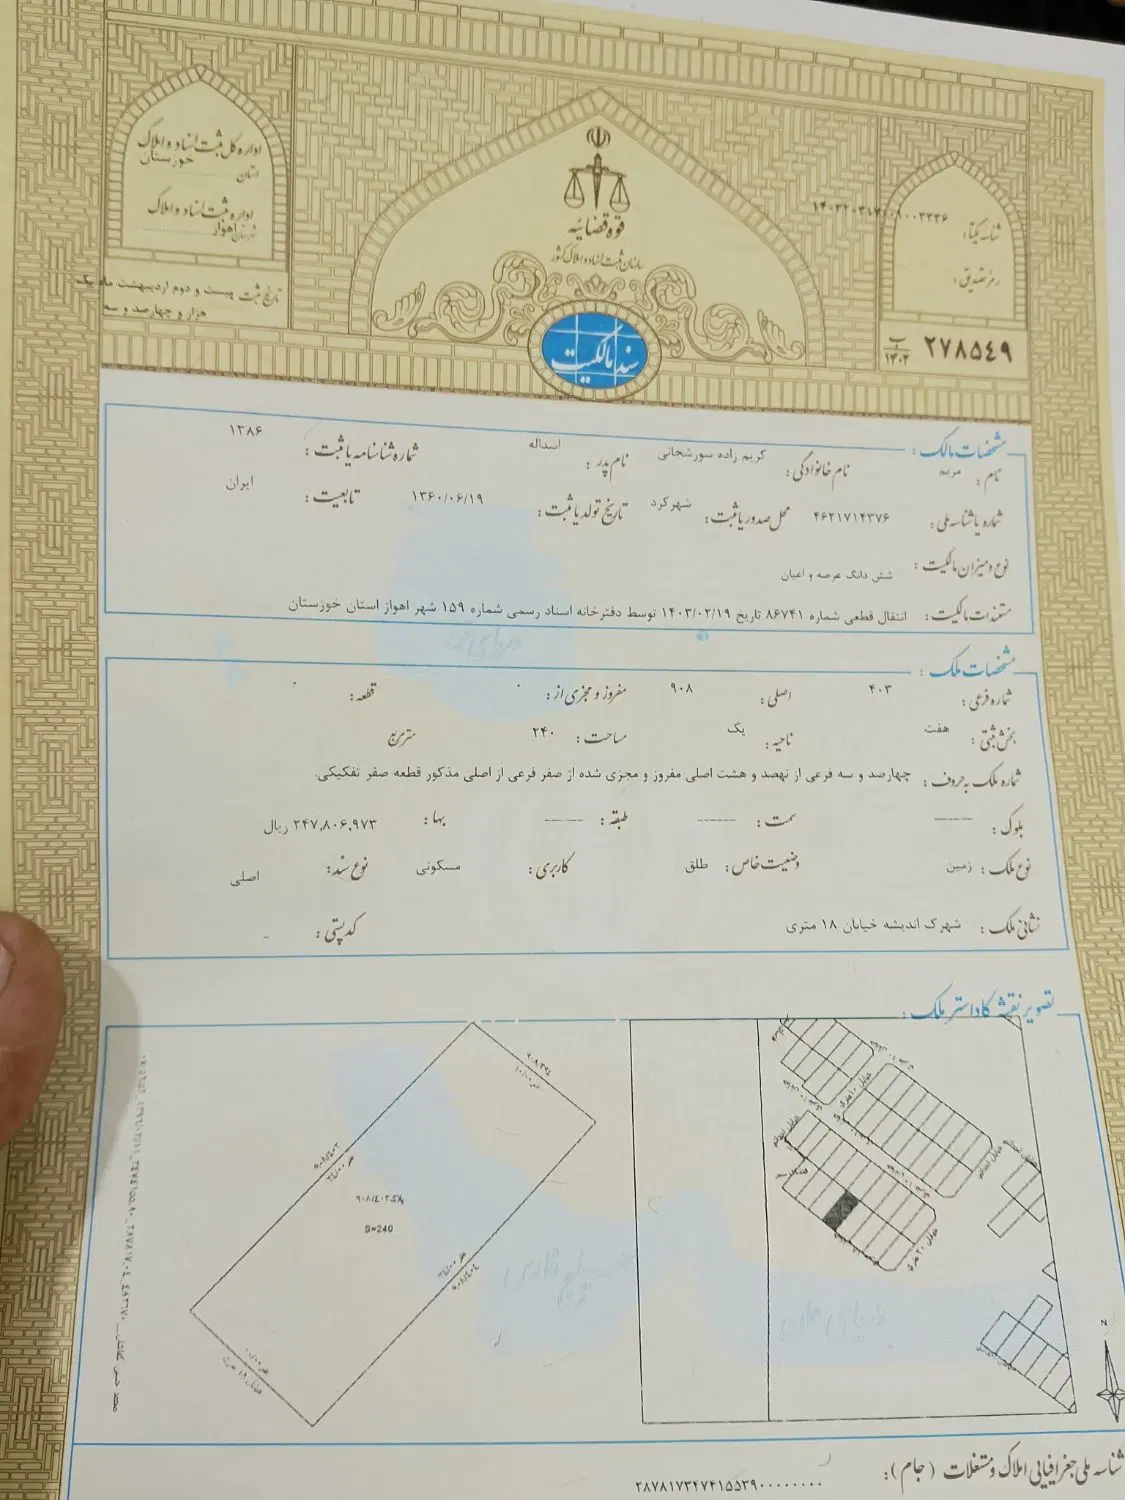 اداره کل ثبت اسناد و املاک
استان خوزستان
اداره ثبت اسناد و املاک
شهرستان اهواز
تاریخ ثبت بیست و دوم اردیبهشت ماه یک
هزار و چهارصد و سه
قوه قضائیه
سازمان ثبت اسناد و املاک کشور
سند مالکیت
شناسه یکتا:
رمز تصدیق:
۲۷۸۵۴۹ ب ۱۴۰۲
مشخصات مالک:
نام: مریم نام خانوادگی: کریم زاده سورشجانی نام پدر: اسداله شماره شناسنامه یا ثبت: ۱۳۸۶
شماره یا شناسه ملی: ۴۶۲۱۷۱۴۳۷۶ محل صدور یا ثبت: شهرکرد تاریخ تولد یا ثبت: ۱۳۶۰/۰۶/۱۹ تابعیت: ایران
نوع و میزان مالکیت: شش دانگ عرصه و اعیان
مستندات مالکیت: انتقال قطعی شماره ۸۶۷۴۱ تاریخ ۱۴۰۳/۰۲/۱۹ توسط دفترخانه اسناد رسمی شماره ۱۵۹ شهر اهواز استان خوزستان
مشخصات ملک:
شماره فرعی: ۴۰۳ اصلی: ۹۰۸ مفروز و مجزی از: ۰ قطعه: ۰
بخش ثبتی: هفت ناحیه: یک مساحت: ۲۴۰ مترمربع
شماره ملک به حروف: چهارصد و سه فرعی از نهصد و هشت اصلی مفروز و مجزی شده از صفر فرعی از اصلی مذکور قطعه صفر تفکیکی.
بلوک: ------ سمت: ------ طبقه: ------ بها: ۲۴۷,۸۰۶,۹۷۳ ریال
نوع ملک: زمین وضعیت خاص: طلق کاربری: مسکونی نوع سند: اصلی
نشانی ملک: شهرک اندیشه خیابان ۱۸ متری کدپستی: -
تصویر نقشه کاداستر ملک:
۹۰۸/۴۰۲
S=240
۹۰۸/۴۰۴
N
شناسه ملی جغرافیایی املاک و مستغلات (جام):